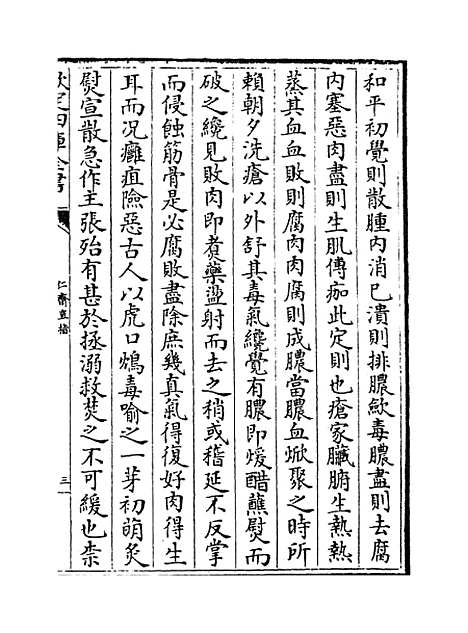 和平初覺則散腫内消已潰則排膿歛毒膿盡則去腐
内塞惡肉盡則生肌傅痂此定則也瘡家臟腑生熱熱
蒸其血血敗則腐肉肉腐則成膿當膿血焮聚之時所
賴朝夕洗瘡以外舒其毒氣纔覺有膿即煖醋蘸熨而
破之纔見敗肉即煮藥盪射而去之稍或稽延不反掌
而侵蝕筋骨是必腐敗盡除庶幾真氣得復好肉得生
耳而况癰疽險惡古人以虎口鴆毒喻之一芽初萌灸
熨宣散急作主張殆有甚於拯溺救焚之不可緩也柰
欽定四庫全書
仁齋直指
三